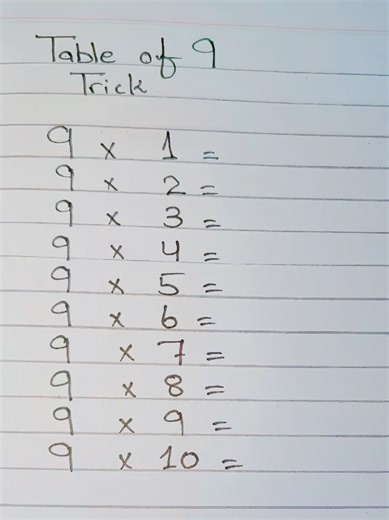 Table of 9
Trick
9 × 1 =
9 × 2 =
9 × 3 =
9 × 4 =
9 × 5 =
9 × 6 =
9 × 7 =
9 × 8 =
9 × 9 =
9 × 10 =